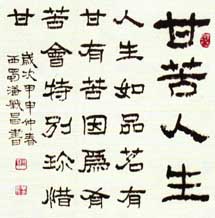 甘苦人生
人生如品茗有
甘有苦因為有
苦會特別珍惜
甘
歲次甲申仲春
西蜀 昌書